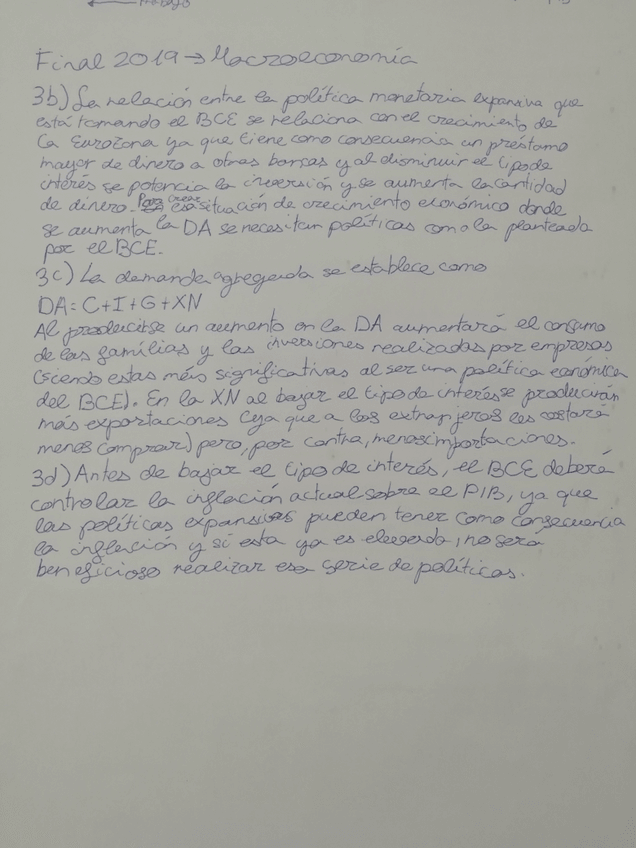 Final 2019 → Macroeconomía
3b) La relación entre la política monetaria expansiva que
está tomando el BCE se relaciona con el crecimiento de
la Eurozona ya que tiene como consecuencia un préstamo
mayor de dinero a otras bancas y al disminuir el tipo de
interés se potencia la inversión y se aumenta la cantidad
de dinero. Para crear esa situación de crecimiento económico donde
se aumenta la DA se necesitan políticas como la planteada
por el BCE.
3c) La demanda agregada se establece como
DA = C+I+G+XN
Al producirse un aumento en la DA aumentará el consumo
de las familias y las inversiones realizadas por empresas
(siendo estas más significativas al ser una política económica
del BCE). En la XN al bajar el tipo de interés se producirán
más exportaciones (ya que a los extranjeros les costará
menos comprar) pero, por contra, menos importaciones.
3d) Antes de bajar el tipo de interés, el BCE deberá
controlar la inflación actual sobre el PIB, ya que
las políticas expansivas pueden tener como consecuencia
la inflación y si esta ya es elevada, no será
beneficioso realizar esa serie de políticas.